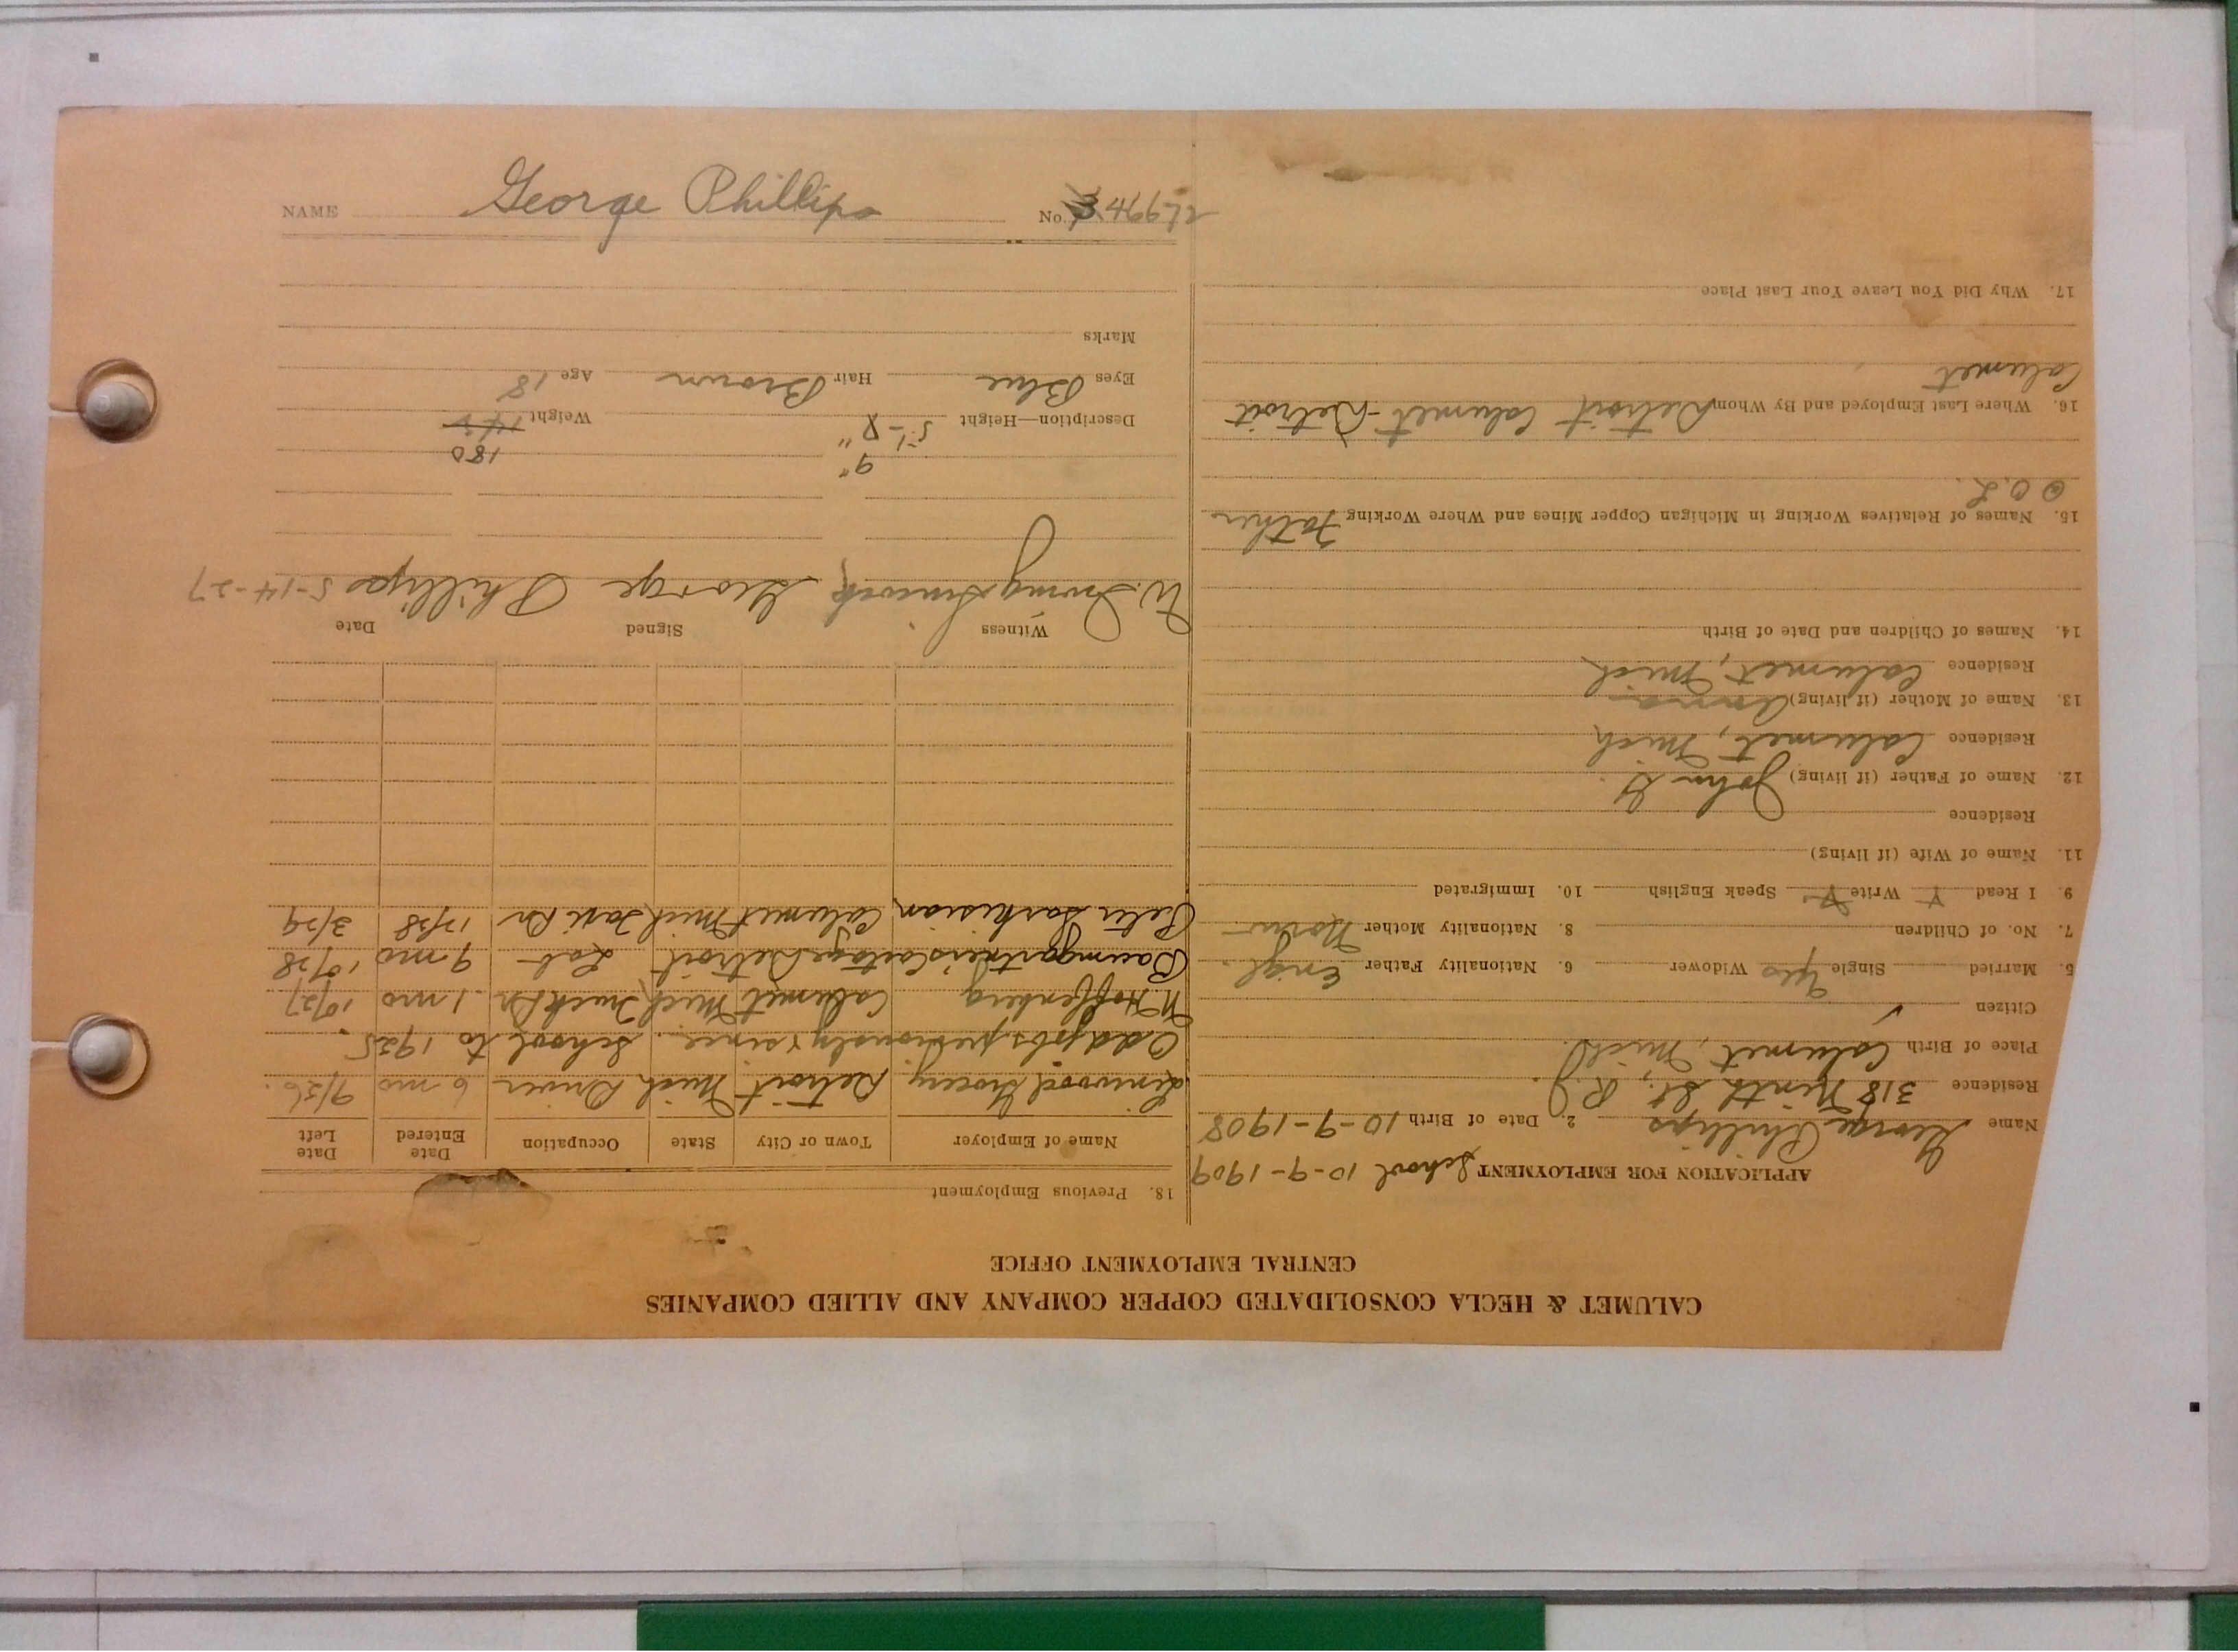 CALUMET & HECLA CONSOLIDATED COPPER COMPANY AND ALLIED COMPANIES
CENTRAL EMPLOYMENT OFFICE
APPLICATION FOR EMPLOYMENT School 10-9-1909
Name George Phillips 2. Date of Birth 10-9-1908
Residence 318 Ninth St., R.J.
Place of Birth Calumet, Mich.
Citizen ✓
5. Married Single Yes Widower 6. Nationality Father Engl.
7. No. of Children 8. Nationality Mother
9. I Read Y Write Y Speak English 10. Immigrated
11. Name of Wife (if living)
Residence
12. Name of Father (if living) John G.
Residence Calumet, Mich
13. Name of Mother (if living) Anna
Residence Calumet, Mich
14. Names of Children and Date of Birth
15. Names of Relatives Working in Michigan Copper Mines and Where Working Father
O.L.
16. Where Last Employed and By Whom Detroit Calumet-Detroit
Calumet
17. Why Did You Leave Your Last Place
18. Previous Employment
Name of Employer Town or City State Occupation Date Entered Date Left
Linwood Grocery Detroit Mich Driver 6 mo 9/26.
Odd jobs previously & since. School to 1925.
N. Hoffenberg Calumet Mich Truck Dr. 1 mo 10/27
Baumgartners Cartage Detroit Lab 9 mo 10/28
Peter Sarkisian Calumet Mich Taxi Dr 12/28 3/29
Witness Signed Date
W. Irving George Phillips 5-14-27
9"
180
Description—Height 5'-8" Weight 142
Eyes Blue Hair Brown Age 18
Marks
NAME George Phillips No.